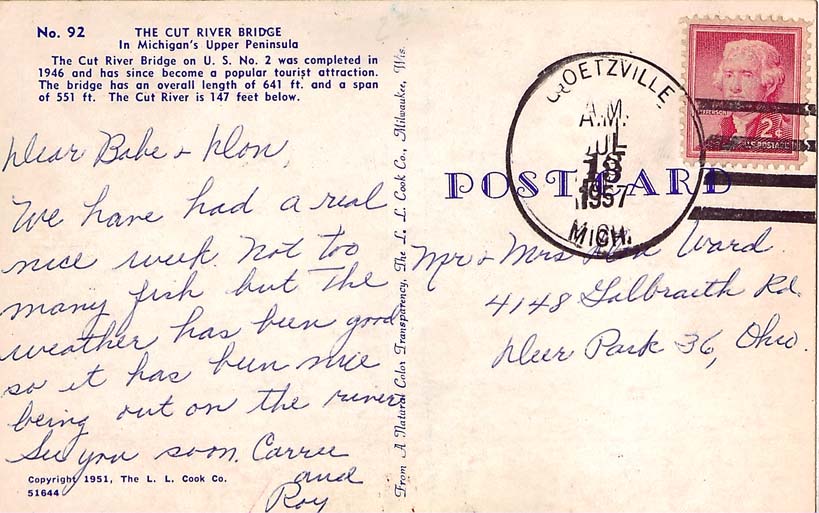 No. 92
THE CUT RIVER BRIDGE
In Michigan's Upper Peninsula
The Cut River Bridge on U. S. No. 2 was completed in
1946 and has since become a popular tourist attraction.
The bridge has an overall length of 641 ft. and a span
of 551 ft. The Cut River is 147 feet below.
Dear Babe & Don,
We have had a real
nice week. Not too
many fish but the
weather has been good
so it has been nice
being out on the river
See you soon. Carrie
and
Roy
Copyright 1951, The L. L. Cook Co.
51644
From A Natural Color Transparency, The L. L. Cook Co., Milwaukee, Wis.
POST CARD
GOETZVILLE
A.M.
JUL
18
1957
MICH.
JEFFERSON
2¢
U.S. POSTAGE
Mr & Mrs Ward
4148 Galbraith Rd.
Deer Park 36, Ohio.